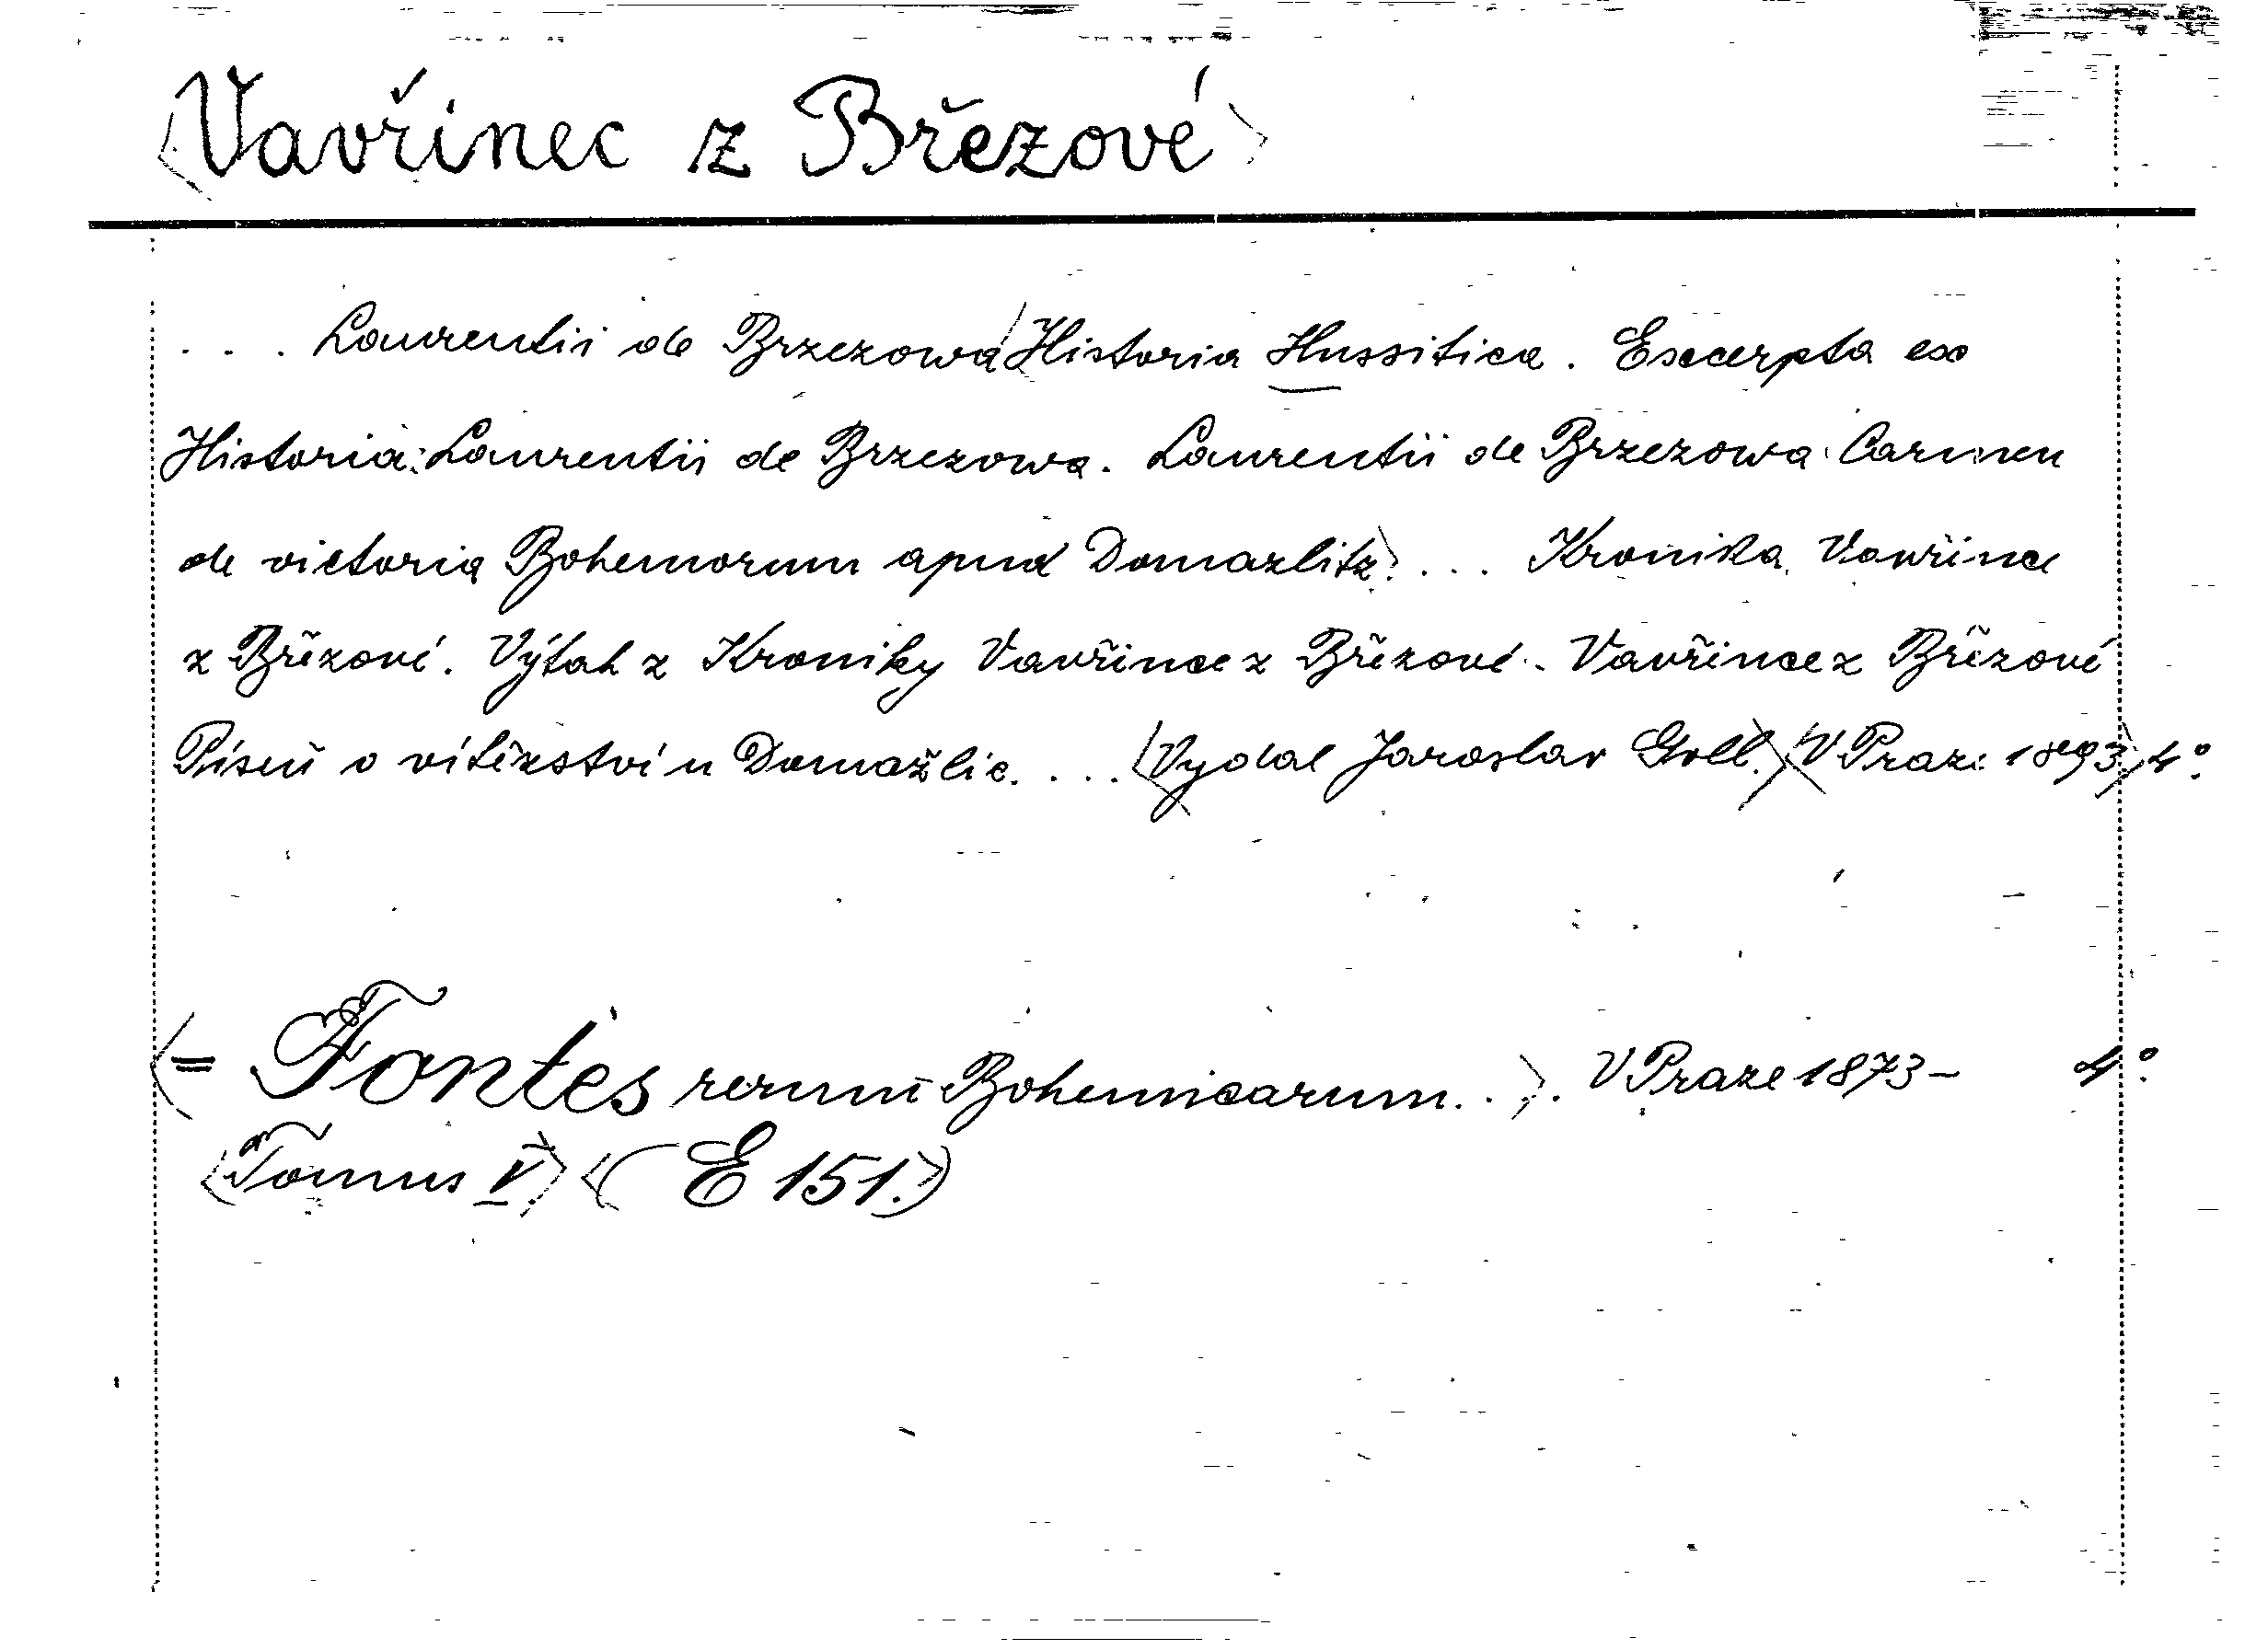 ⟨Vavřinec z Březové⟩
... Laurentii de Brzezowa ⟨Historia Hussitica. Excerpta ex
Historia Laurentii de Brzezowa. Laurentii de Brzezowa Carmen
de victoria Bohemorum apud Domazlitz⟩... Kronika Vavřince
z Březové. Výtah z Kroniky Vavřince z Březové. Vavřince z Březové
Píseň o vítězství u Domažlic. ... ⟨Vydal Jaroslav Goll.⟩ ⟨V Praze 1893⟩ 4°.
⟨= Fontes rerum Bohemicarum...⟩. V Praze 1873– 4°.
⟨Tomus V.⟩ ⟨(E 151.⟩)